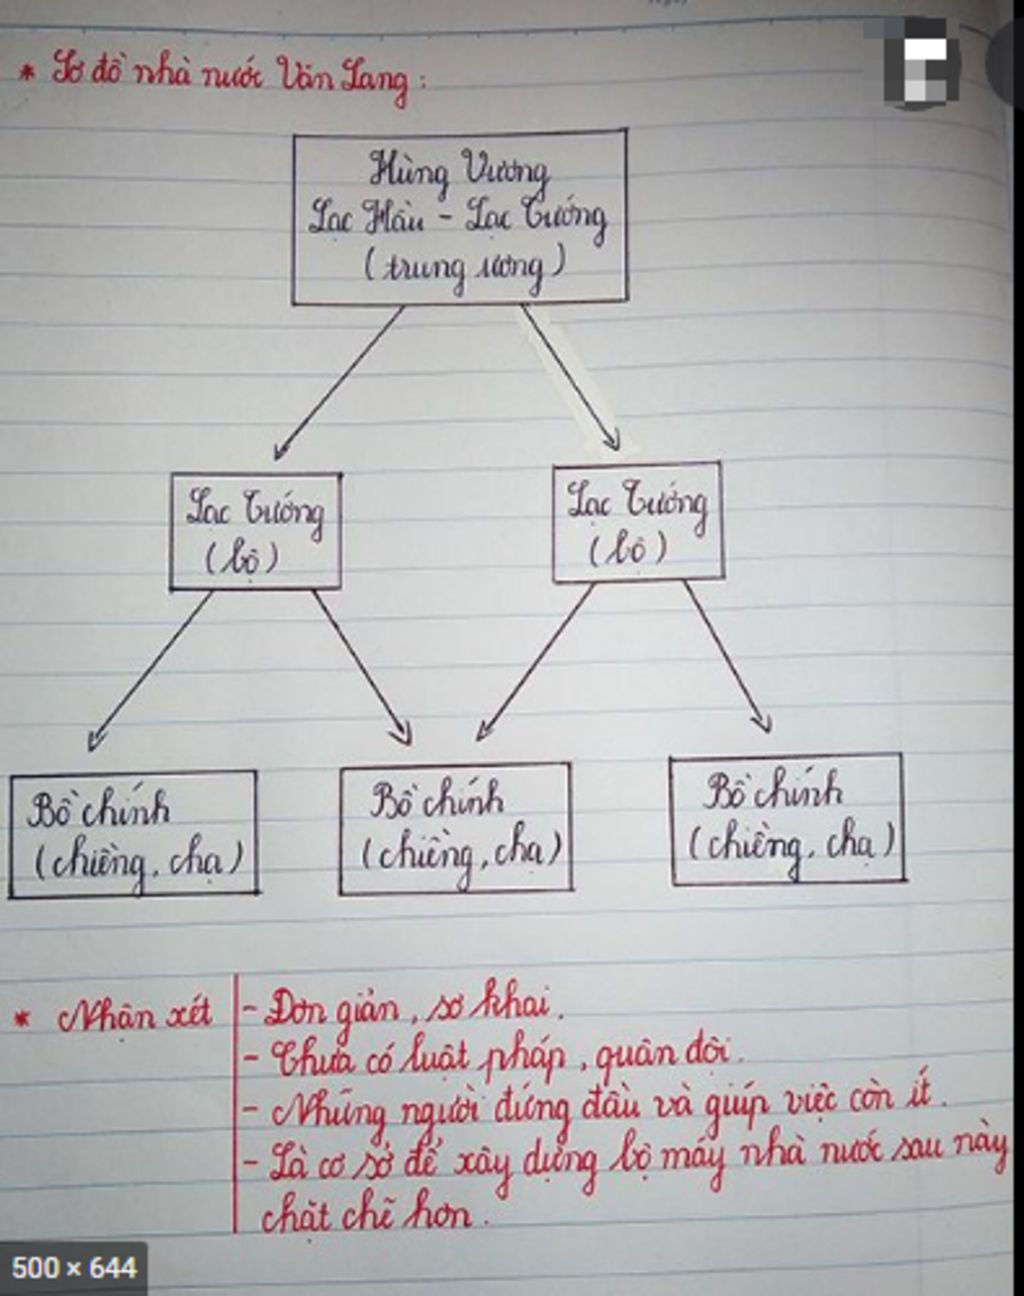 * Sơ đồ nhà nước Văn Lang:
Hùng Vương
Lạc Hầu - Lạc Tướng
(trung ương)
Lạc Tướng
(bộ)
Lạc Tướng
(bộ)
Bồ chính
(chiềng, chạ)
Bồ chính
(chiềng, chạ)
Bồ chính
(chiềng, chạ)
* Nhận xét
- Đơn giản, sơ khai.
- Chưa có luật pháp, quân đội.
- Những người đứng đầu và giúp việc còn ít.
- Là cơ sở để xây dựng bộ máy nhà nước sau này
chặt chẽ hơn.
500 × 644